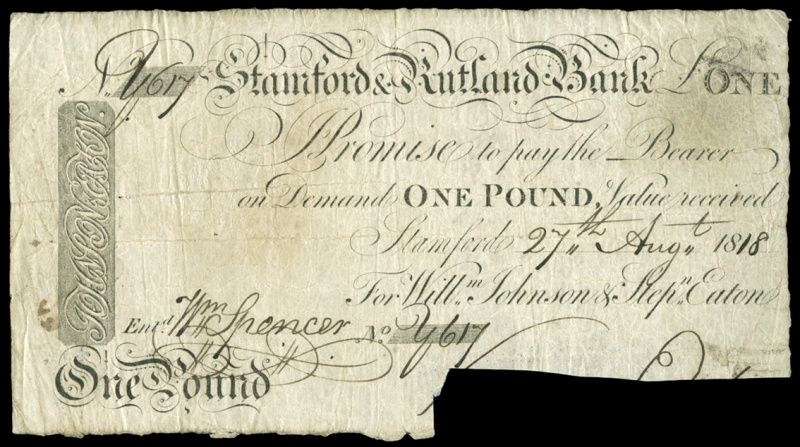 No Y617 Stamford & Rutland Bank £ONE
I Promise to pay the Bearer
on Demand ONE POUND, Value received
Stamford 27th Augt 1818
For Willm Johnson & Stepn Eaton
Entd Wm Spencer No Y617
One Pound